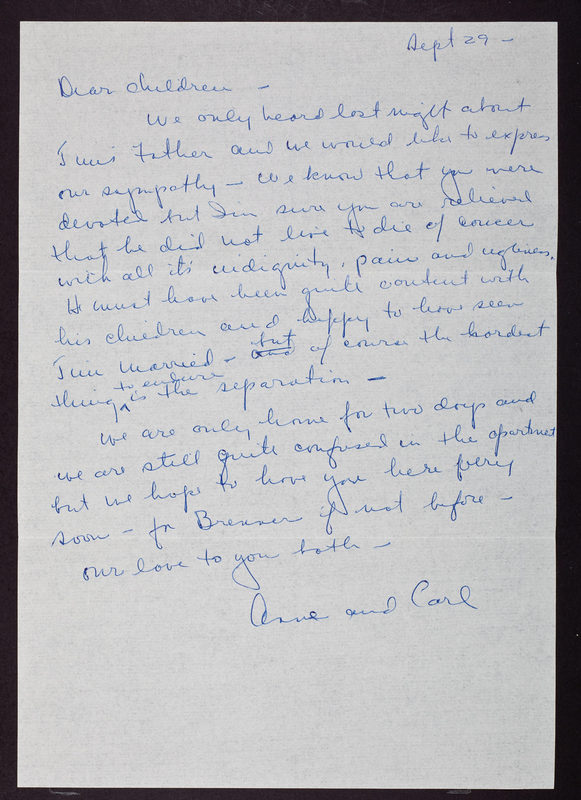 Sept 29 -
Dear Children -
We only heard last night about
Jim's Father and we would like to express
our sympathy - We know that you were
devoted but I'm sure you are relieved
that he did not live to die of cancer
with all it's indignity, pain and ugliness.
He must have been quite content with
his children and happy to have seen
Jim married - but and of course the hardest
thing to endure is the separation -
We are only home for two days and
we are still quite confused in the apartment
but we hope to have you here very
soon - for Brenner if not before -
our love to you both -
Anne and Carl